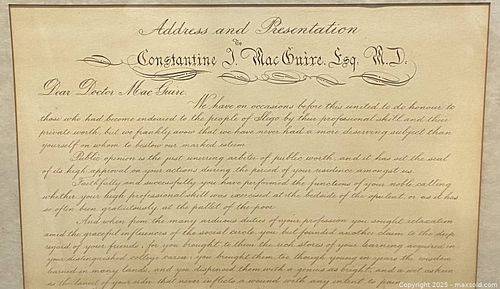 Address and Presentation
To
Constantine J. MacGuire, Esq. M.D.
Dear Doctor MacGuire.
We have on occasions before this united to do honour to
those who had become endeared to the people of Sligo by their professional skill and their
private worth, but we frankly avow that we have never had a more deserving subject than
yourself on whom to bestow our marked esteem
Public opinion is the just unerring arbiter of public worth, and it has set the seal
of its high approval on your actions during the period of your residence amongst us.
Faithfully and successfully you have performed the functions of your noble calling
whether your high professional skill was exercised at the bedside of the opulent, or as it has
so often been gratuitously at the pallet of the poor
And when from the many arduous duties of your profession you sought relaxation
amid the graceful influences of the social circle, you but founded another claim to the deep
regard of your friends; for you brought to them the rich stores of your learning acquired in
your distinguished college career; you brought them, too, though young in years the wisdom
learned in many lands, and you dispensed them with a genius as bright, and a wit as keen
as the lancet of your that never inflicts a wound with any intent to
Copyright 2025 - maxsold.com